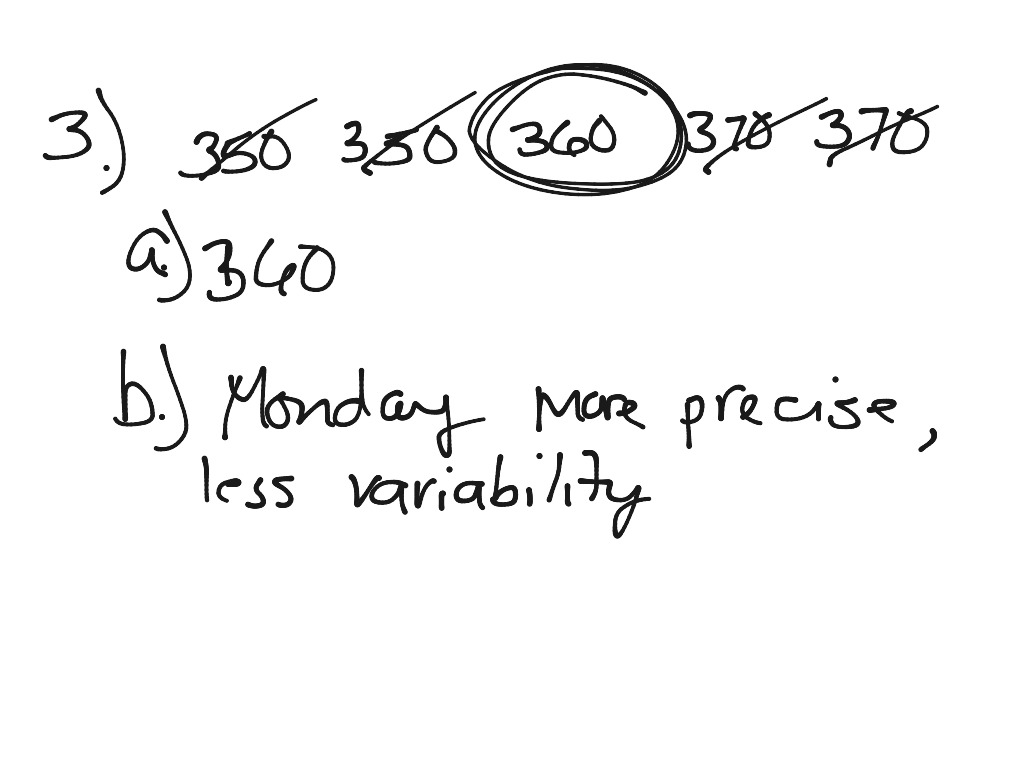 3.) 350 350 360 370 370
a.) 360
b.) Monday more precise,
less variability